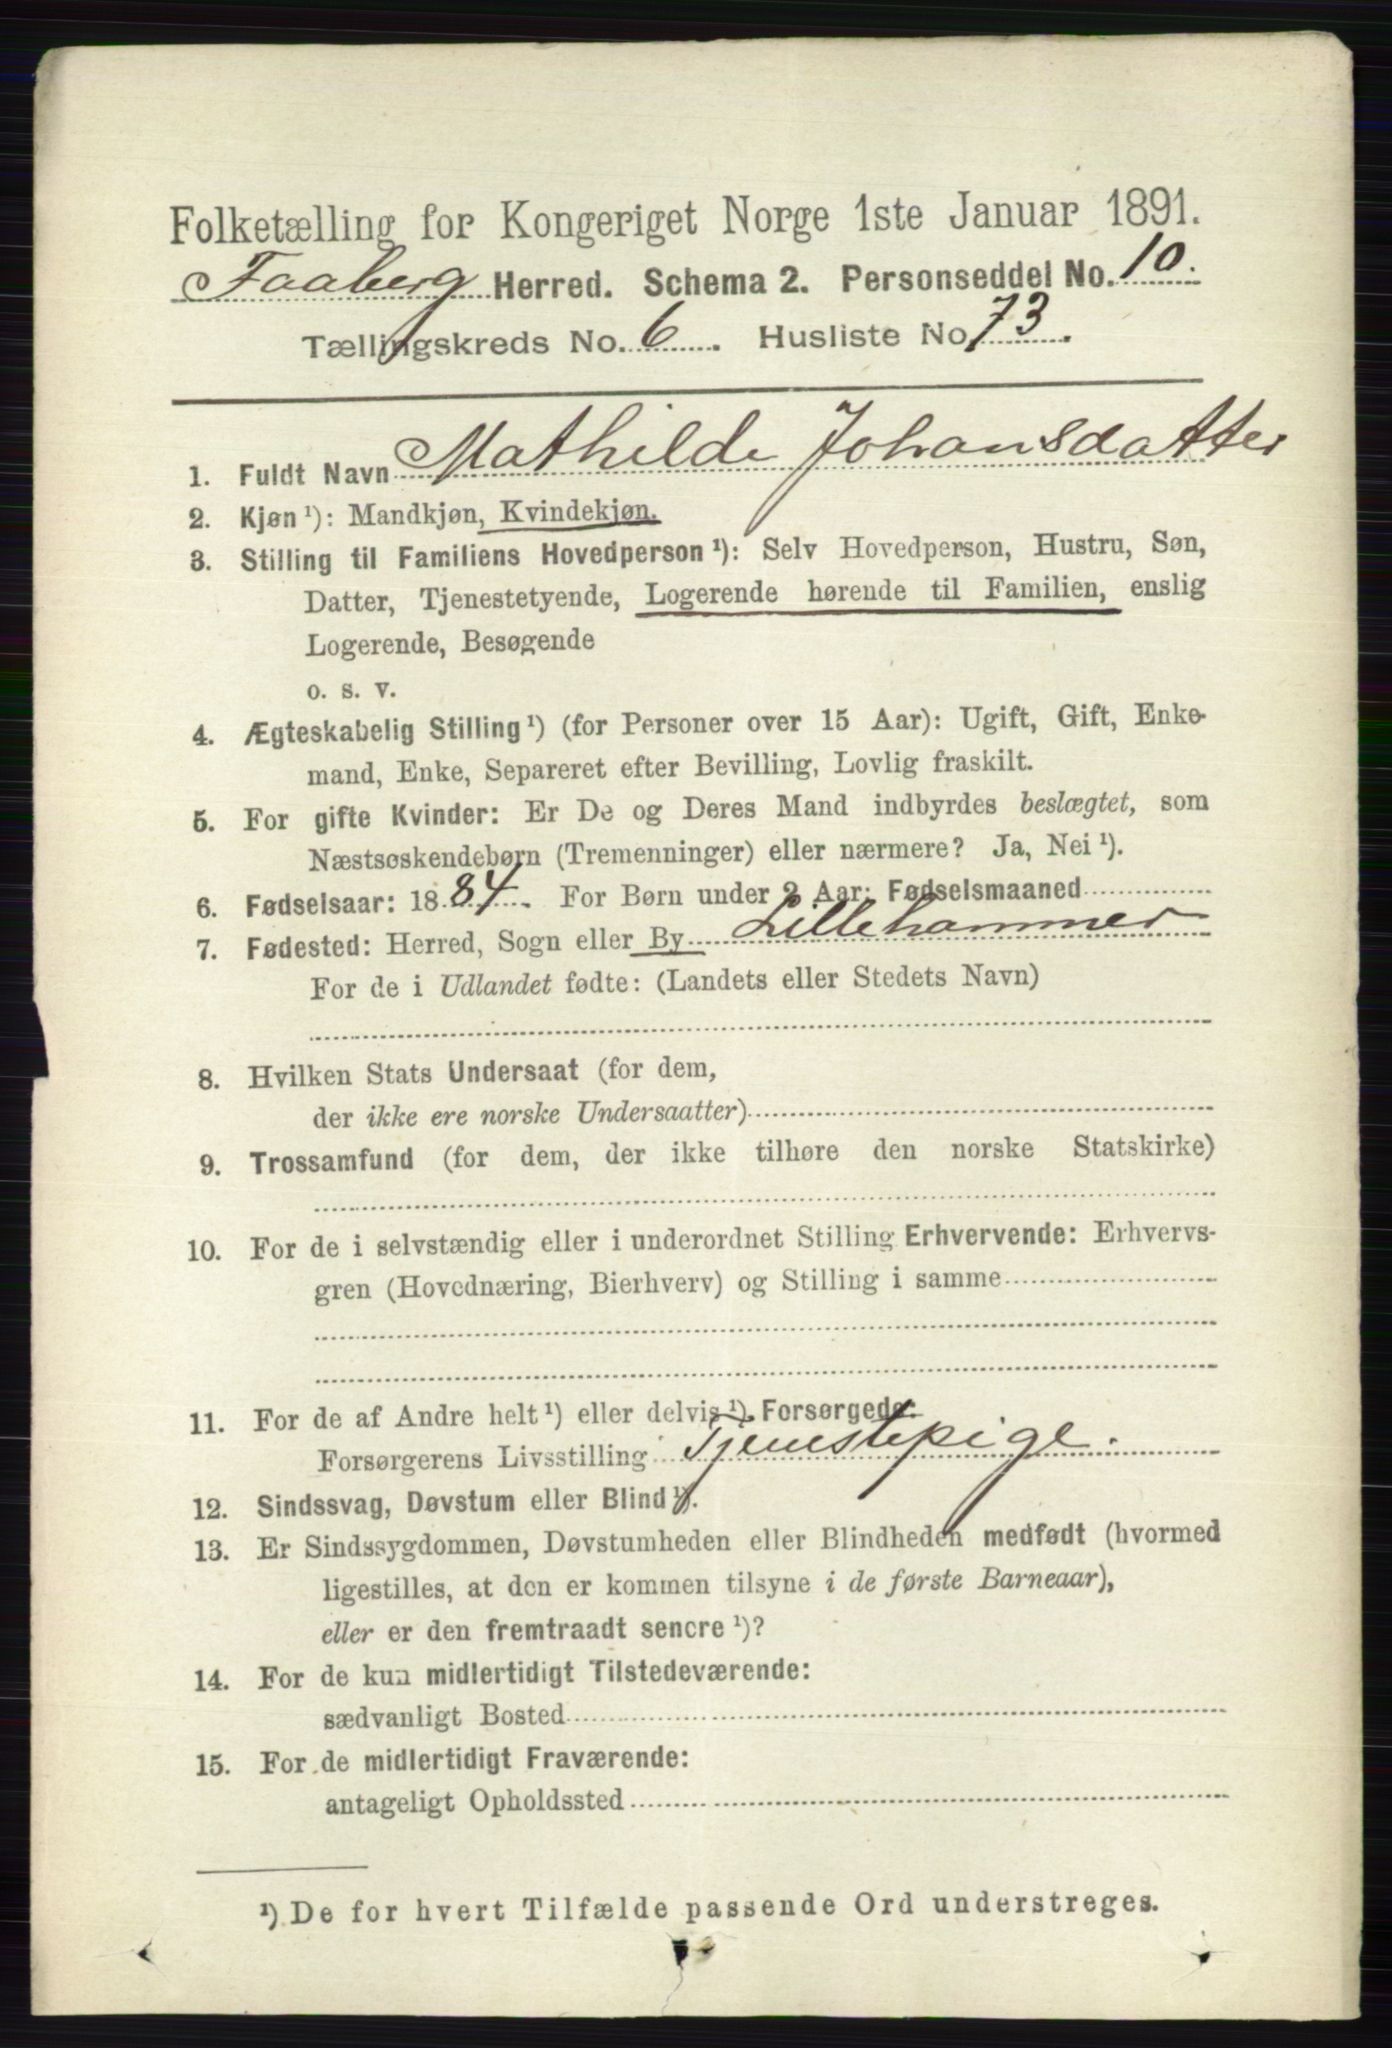 Folketælling for Kongeriget Norge 1ste Januar 1891.
Faaberg Herred. Schema 2. Personseddel No. 10.
Tællingskreds No. 6. Husliste No. 73.
1. Fuldt Navn Mathilde Johansdatter
2. Kjøn ¹): Mandkjøn, Kvindekjøn.
3. Stilling til Familiens Hovedperson ¹): Selv Hovedperson, Hustru, Søn,
Datter, Tjenestetyende, Logerende hørende til Familien, enslig
Logerende, Besøgende
o. s. v.
4. Ægteskabelig Stilling ¹) (for Personer over 15 Aar): Ugift, Gift, Enke-
mand, Enke, Separeret efter Bevilling, Lovlig fraskilt.
5. For gifte Kvinder: Er De og Deres Mand indbyrdes beslægtet, som
Næstsøskendebørn (Tremenninger) eller nærmere? Ja, Nei ¹).
6. Fødselsaar: 1884. For Børn under 2 Aar: Fødselsmaaned
7. Fødested: Herred, Sogn eller By Lillehammer
For de i Udlandet fødte: (Landets eller Stedets Navn)
8. Hvilken Stats Undersaat (for dem,
der ikke ere norske Undersaatter)
9. Trossamfund (for dem, der ikke tilhøre den norske Statskirke)
10. For de i selvstændig eller i underordnet Stilling Erhvervende: Erhvervs-
gren (Hovednæring, Bierhverv) og Stilling i samme
11. For de af Andre helt ¹) eller delvis ¹) Forsørgede:
Forsørgerens Livsstilling Tjenestepige.
12. Sindssvag, Døvstum eller Blind ¹).
13. Er Sindssygdommen, Døvstumheden eller Blindheden medfødt (hvormed
ligestilles, at den er kommen tilsyne i de første Barneaar),
eller er den fremtraadt senere ¹)?
14. For de kun midlertidigt Tilstedeværende:
sædvanligt Bosted
15. For de midlertidigt Fraværende:
antageligt Opholdssted
¹) De for hvert Tilfælde passende Ord understreges.